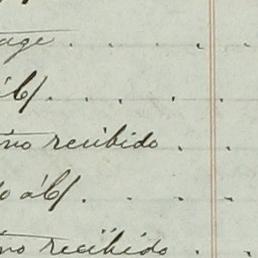 age
á b/.
ino recibido
do á b/.
ino recibido